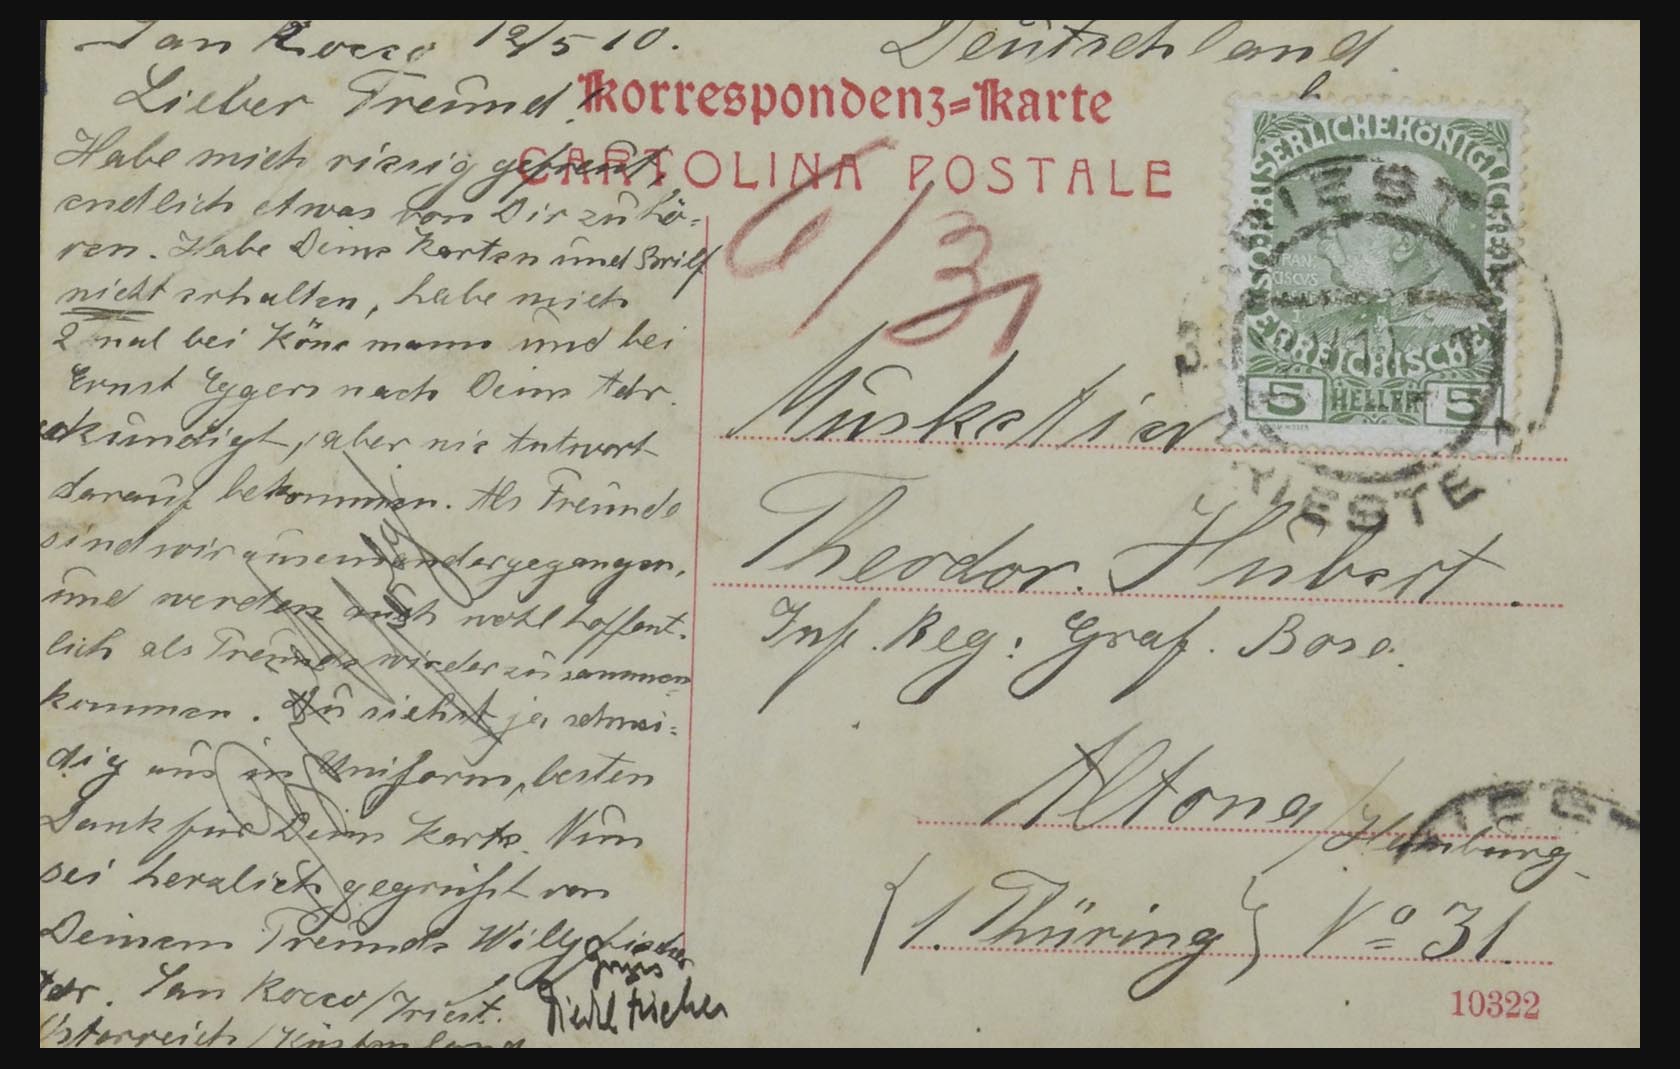 San Rocco 12/5 10.
Lieber Freund!
Habe mich riesig gefreut,
endlich etwas von Dir zu hö=
ren. Habe Deine Karten und Brief
nicht erhalten, habe mich
2 mal bei und bei
Ernst Eggers nach Deine Adr.
erkundigt, aber nie Antwort
darauf bekommen. Als Freunde
sind wir auseinandergegangen,
und werden auch wohl hoffent=
lich als Freunde wieder zusammen
kommen. Du siehst ja schnei=
dig aus in Uniform, besten
Dank für Deine Karte. Nun
sei herzlich gegrüßt von
Deinem Freunde Willy Fischer
Adr. San Rocco/Triest.
Österreich/Küstenland
Gruss
Fischer
Deutschland
Korrespondenz=Karte
CARTOLINA POSTALE
6/31
KAISERLICHE KÖNIGLICHE
ÖSTERREICHISCHE
FRAN
CISCVS
5 HELLER 5
TRIEST
TRIESTE
TRIEST
Musketier
Theodor. Hubert.
Inf. Reg: Graf. Bose.
Altona/Hamburg
(1. Thüring) No 31.
10322